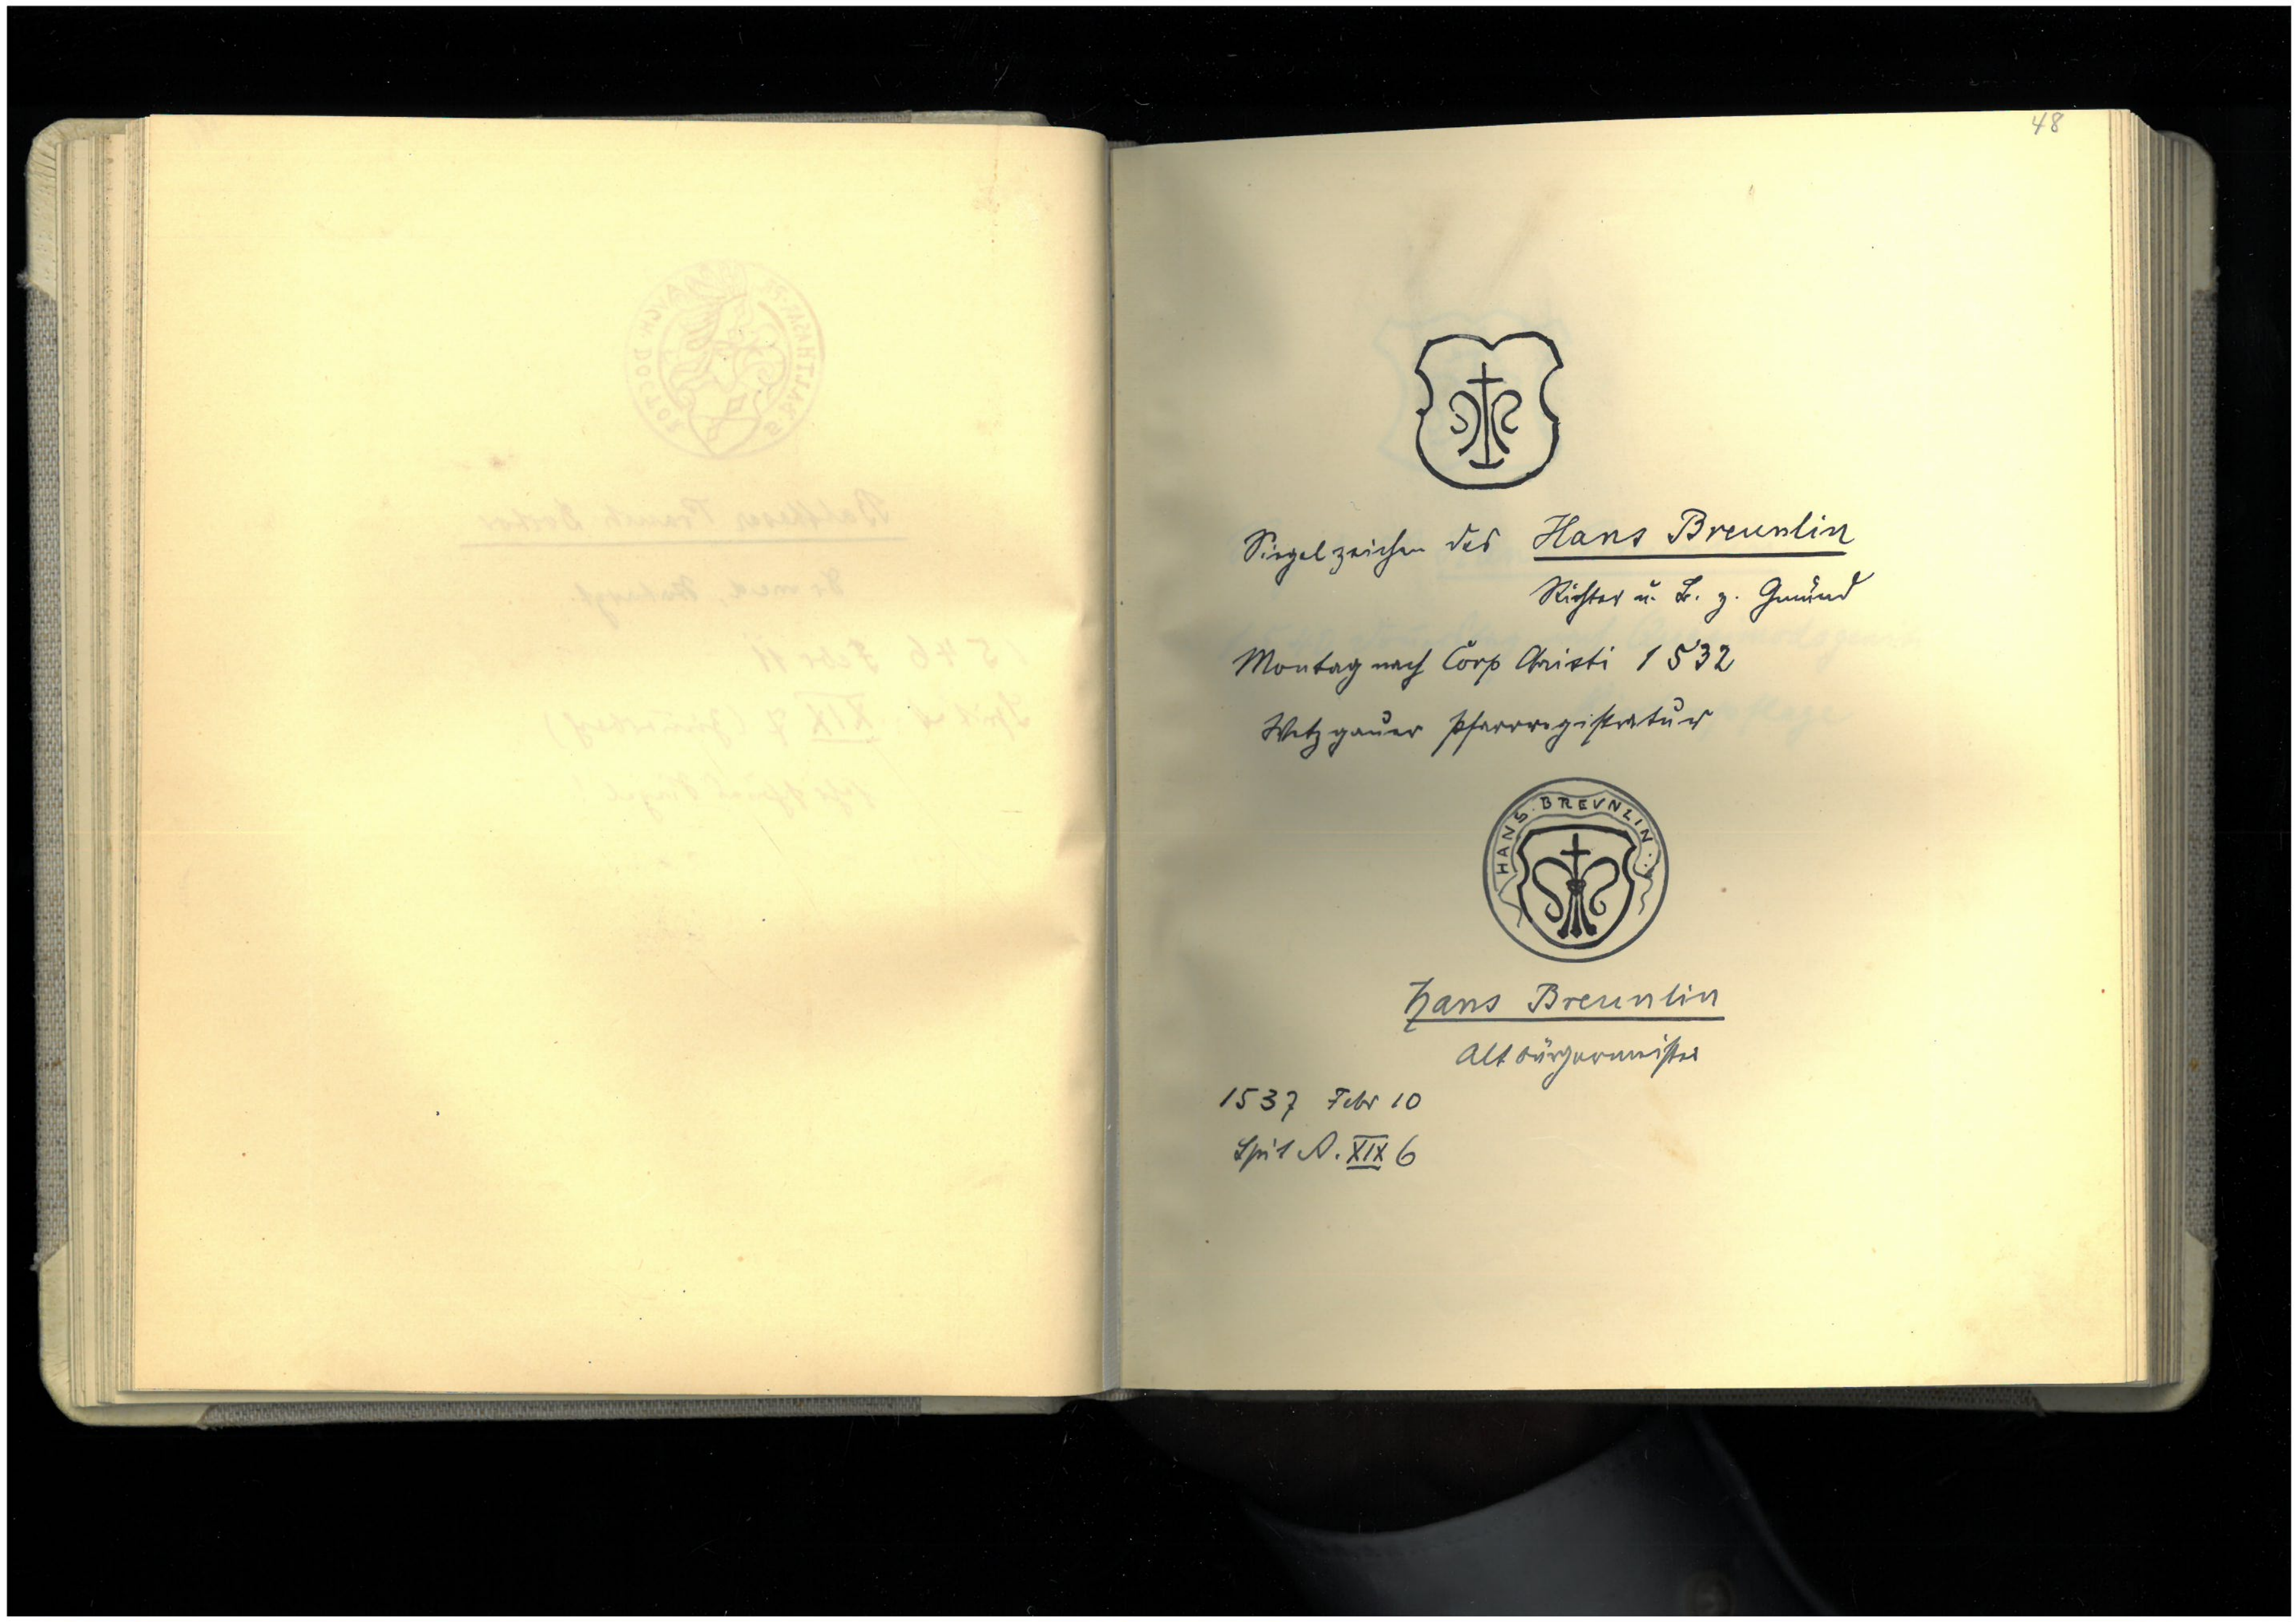 48
Siegelzeichen des Hans Breunlin
Richter u. B. z. Gmünd
Montag nach Corp Christi 1532
Wetzgauer Pfarrregistratur
HANS · BREVNLIN
Hans Breunlin
Altbürgermeister
1537 Febr 10
Spit A. XIX 6